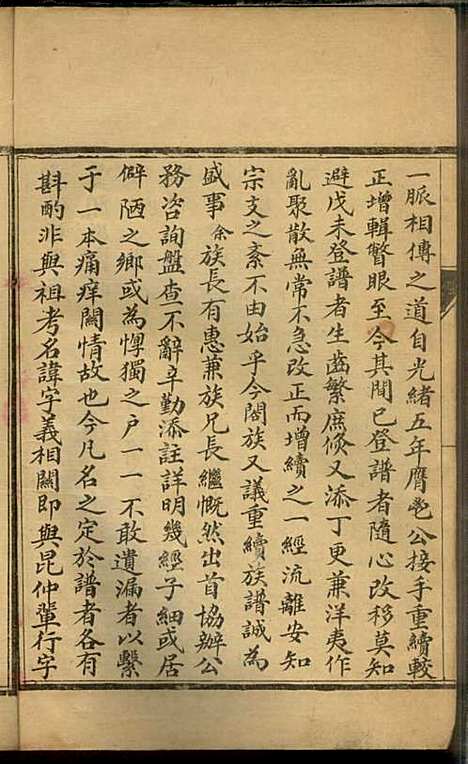 一脈相傳之道自光緒五年膺邑公接手重續較
正增輯瞥眼至今其間已登譜者隨心改移莫知
避戊未登譜者生齒繁庶倏又添丁更兼洋夷作
亂聚散無常不急改正而增續之一經流離安知
宗支之紊不由始乎今閤族又議重續族譜誠為
盛事余族長有惠兼族兄長繼慨然出首協辦公
務咨詢盤查不辭辛勤添註詳明幾經子細或居
僻陋之鄉或為惸獨之户一一不敢遺漏者以繫
于一本痛痒關情故也今凡名之定於譜者各有
斟酌非與祖考名諱字義相關即與昆仲輩行字